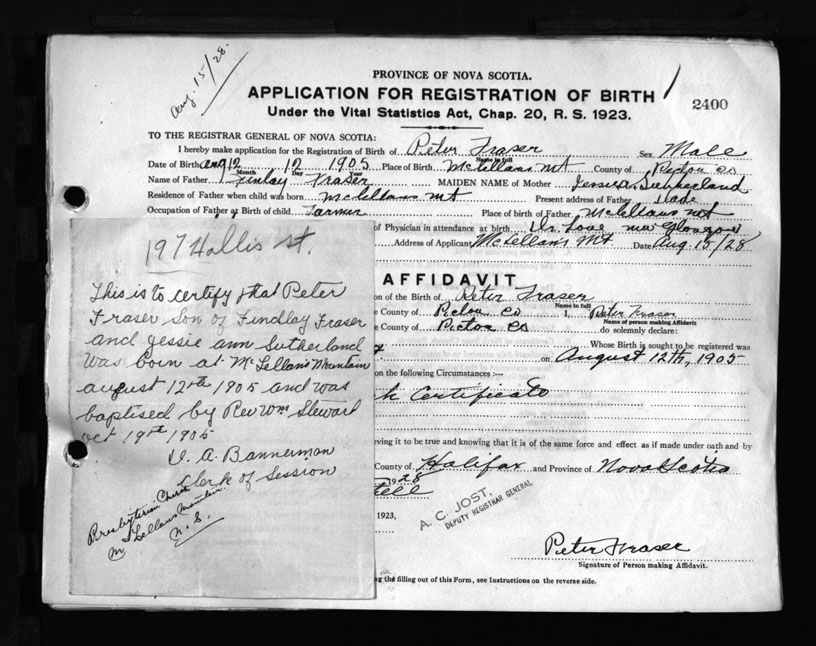 Aug. 15/28.
PROVINCE OF NOVA SCOTIA.
APPLICATION FOR REGISTRATION OF BIRTH
2400
Under the Vital Statistics Act, Chap. 20, R. S. 1923.
TO THE REGISTRAR GENERAL OF NOVA SCOTIA:
I hereby make application for the Registration of Birth of Peter Fraser Sex Male
Name in full
Date of Birth Aug 12 12 1905 Place of Birth McLellans Mt County of Pictou Co
Month Day Year
Name of Father Finlay Fraser MAIDEN NAME of Mother Jessie A Sutherland
Residence of Father when child was born McLellans Mt Present address of Father
Occupation of Father at Birth of child Farmer Place of birth of Father McLellans Mt
of Physician in attendance at birth Dr Love New Glasgow
Address of Applicant McLellans Mt Date Aug. 15/28
197 Hollis St.
This is to certify that Peter
Fraser Son of Findlay Fraser
and Jessie Ann Sutherland
Was born at McLellans Mountain
August 12th 1905 and was
baptised by Rev Wm Stewart
Oct 19th 1905
A. Bannerman
Clerk of Session
Presbyterian Church
McLellans Mountain
N. S.
AFFIDAVIT
on of the Birth of Peter Fraser
Name in full
e County of Pictou Co I, Peter Fraser
Name of person making Affidavit
e County of Pictou Co do solemnly declare:
Whose Birth is sought to be registered was
on August 12th, 1905
on the following Circumstances :--
h Certificate
eving it to be true and knowing that it is of the same force and effect as if made under oath and by
County of Halifax and Province of Nova Scotia
1928
ell
1923,
A. C. JOST.
DEPUTY REGISTRAR GENERAL
Peter Fraser
Signature of Person making Affidavit.
ng the filling out of this Form, see Instructions on the reverse side.